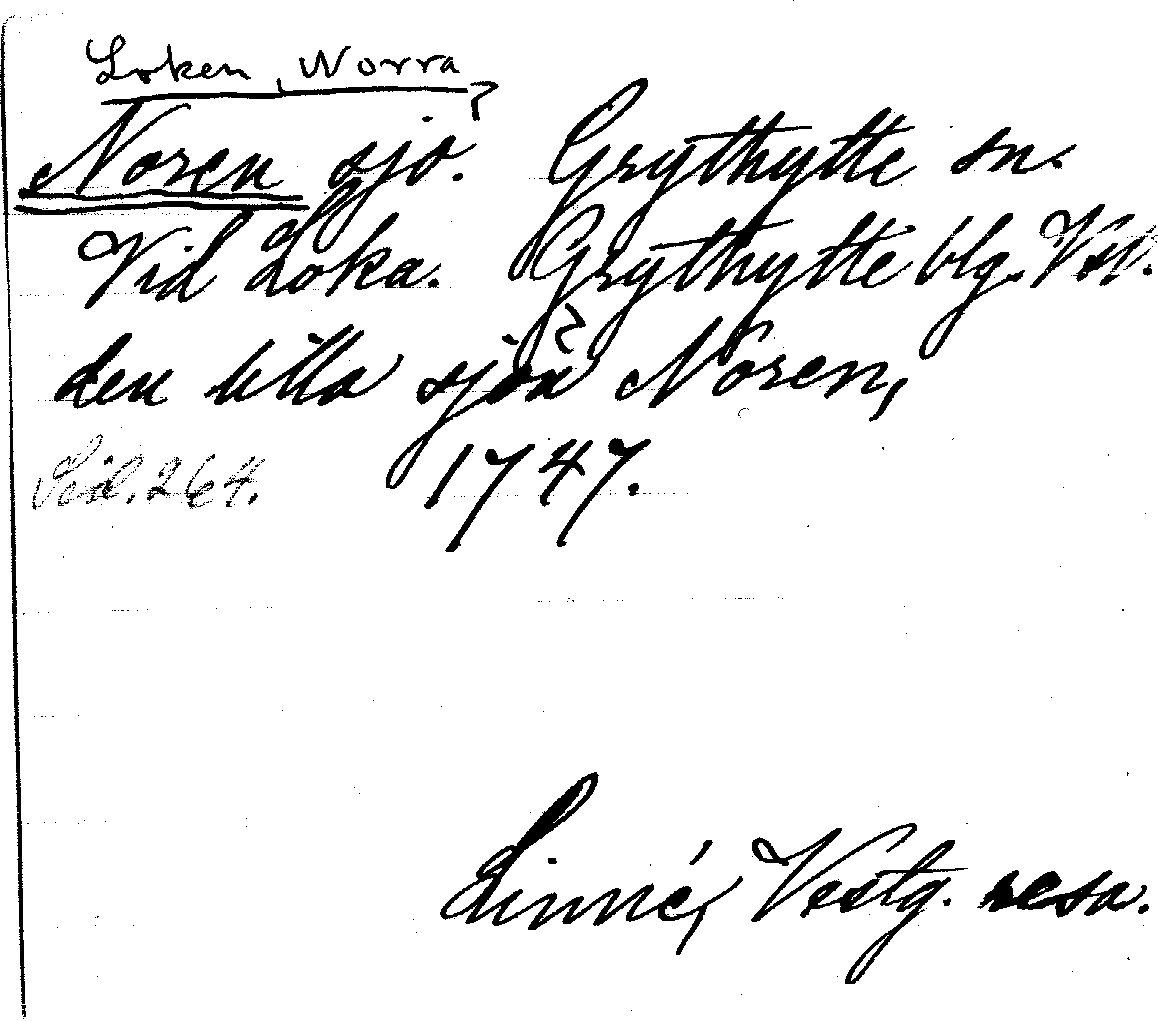 Loken, Norra
?
Noren sjö. Grythytte sn.
Vid Loka. Grythytte blg. Vstl.
den lilla sjön Noren,
Sid. 264. 1747.
Linné, Vestg. resa.